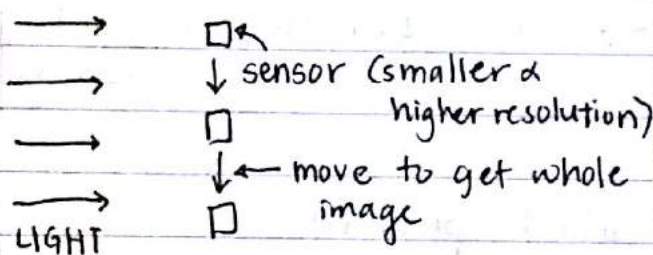 sensor (smaller &
higher resolution)
move to get whole
image
LIGHT